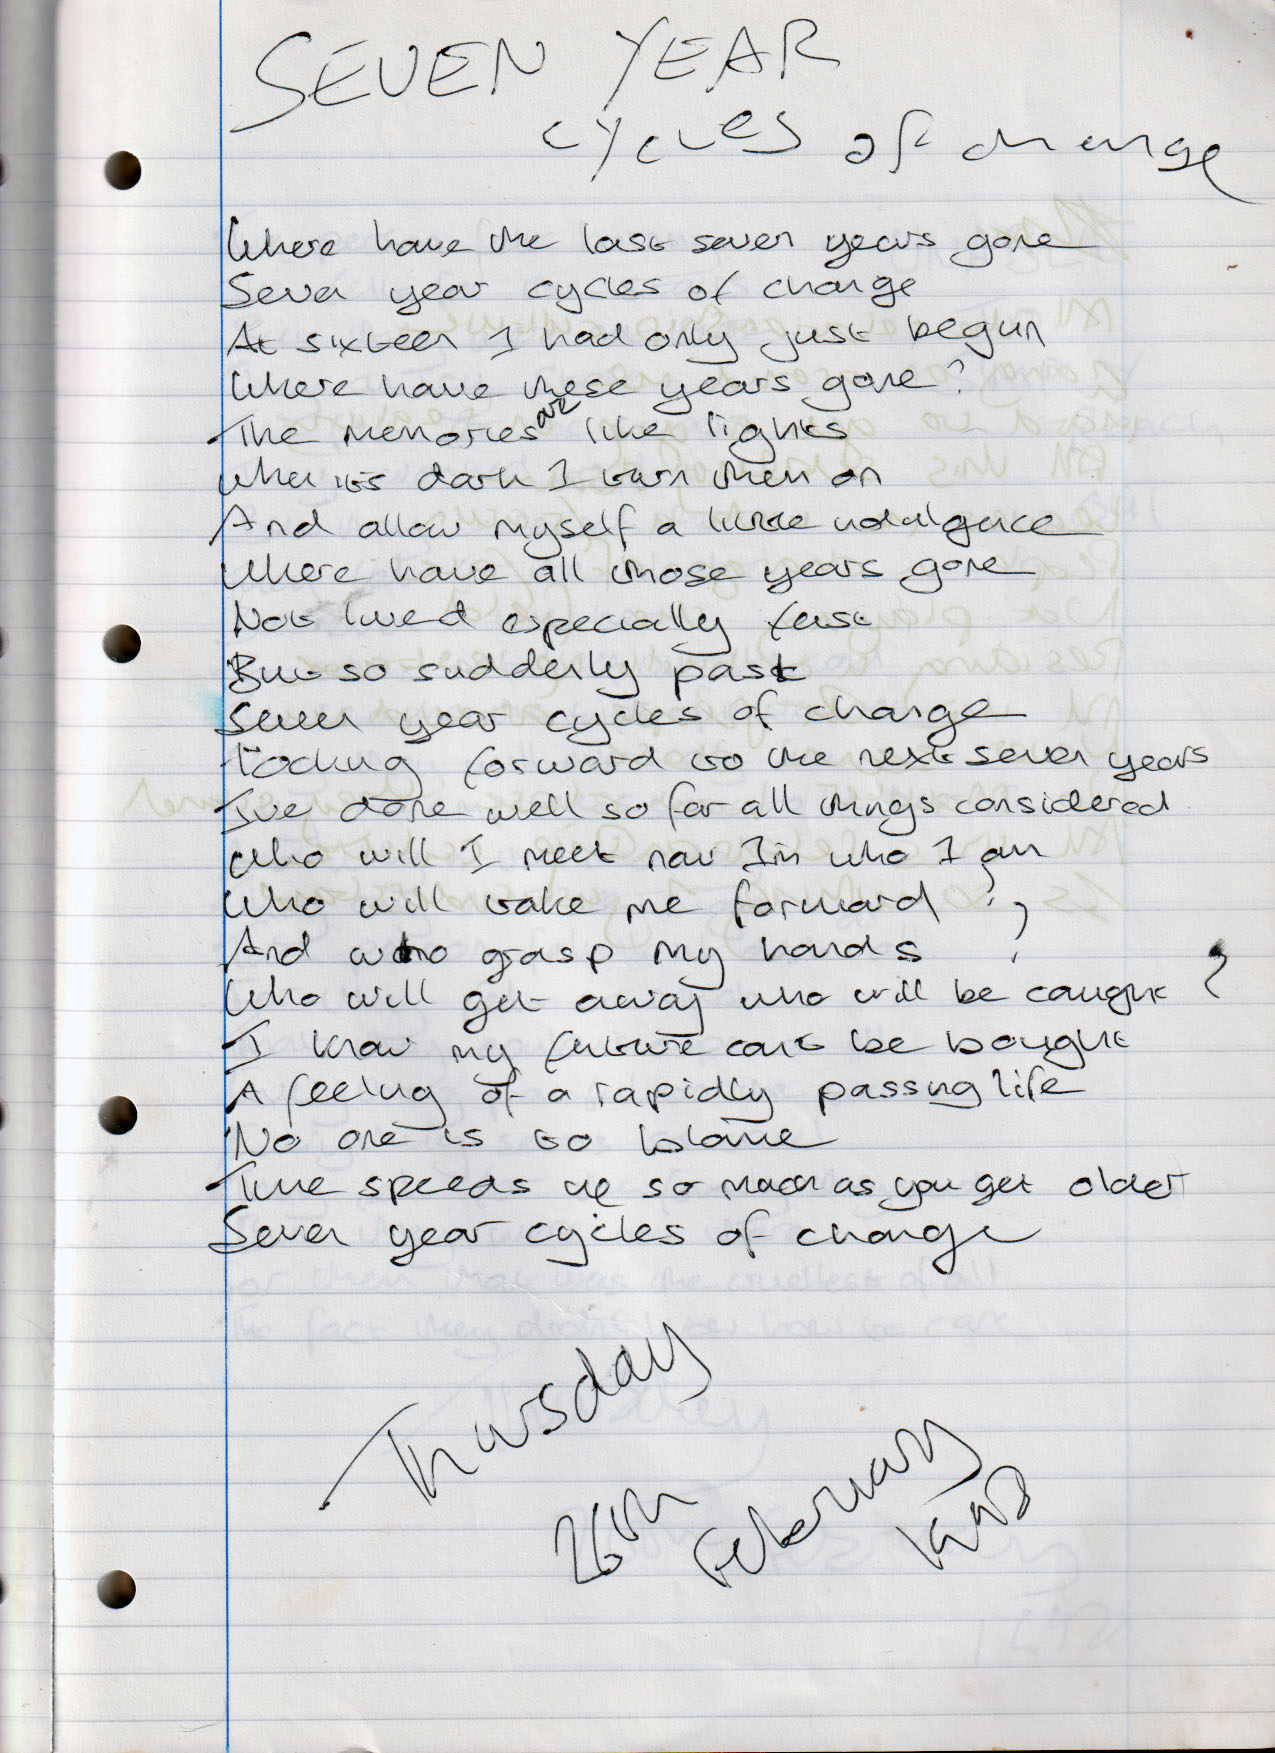 SEVEN YEAR
cycles of change
Where have the last seven years gone
Seven year cycles of change
At sixteen I had only just begun
Where have these years gone?
The memories are like lights
When its dark I turn them on
And allow myself a little indulgence
Where have all those years gone
Not lived especially fast
But so suddenly past
Seven year cycles of change
Looking forward to the next seven years
I've done well so far all things considered
Who will I meet now I'm who I am
Who will take me forward ?
And who grasp my hands ?
Who will get away who will be caught ?
I know my future cant be bought
A feeling of a rapidly passing life
No one is to blame
Time speeds up so much as you get older
Seven year cycles of change
or them that was the cruellest of all
The fact they didn't care
Thursday
26th
February